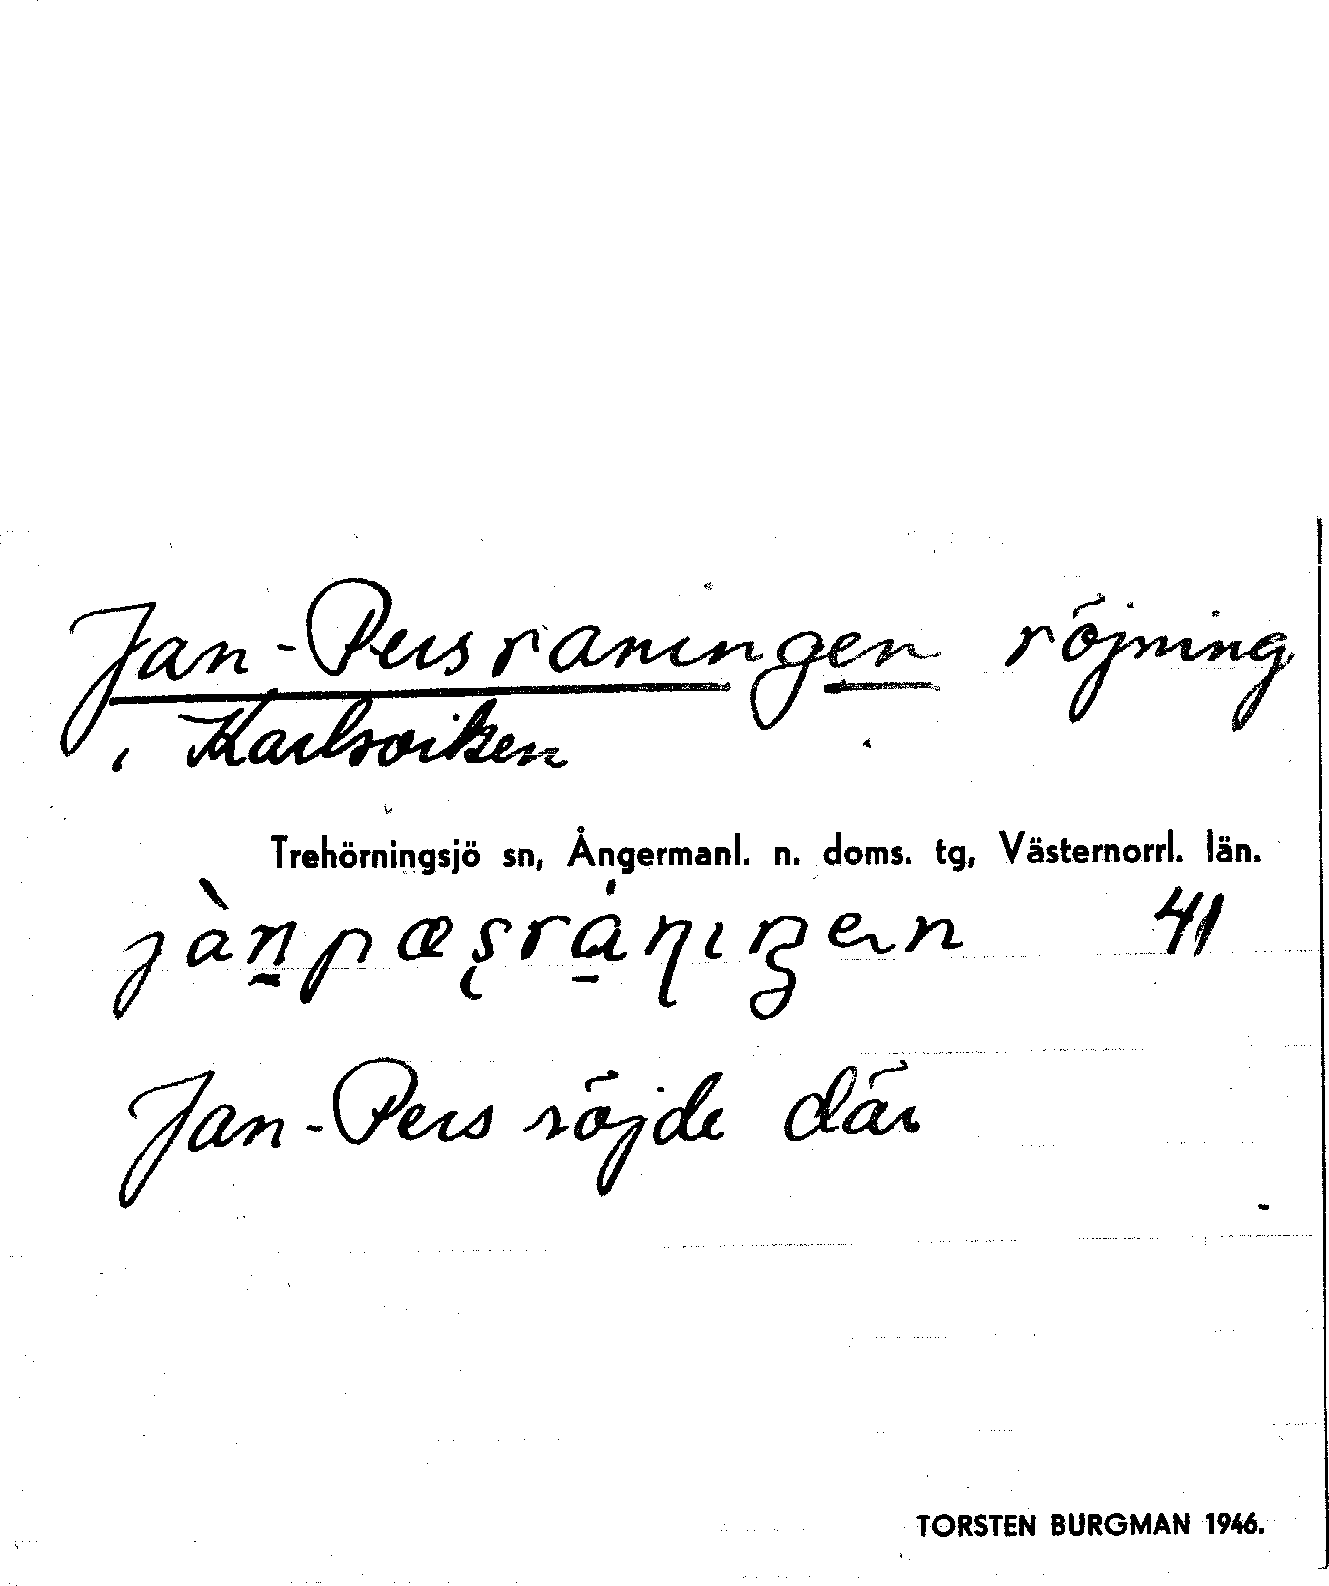 Jan-Persraningen röjning
i Karlsviken
Trehörningsjö sn, Ångermanl. n. doms. tg, Västernorrl. län.
41
Jan-Pers röjde där
TORSTEN BURGMAN 1946.